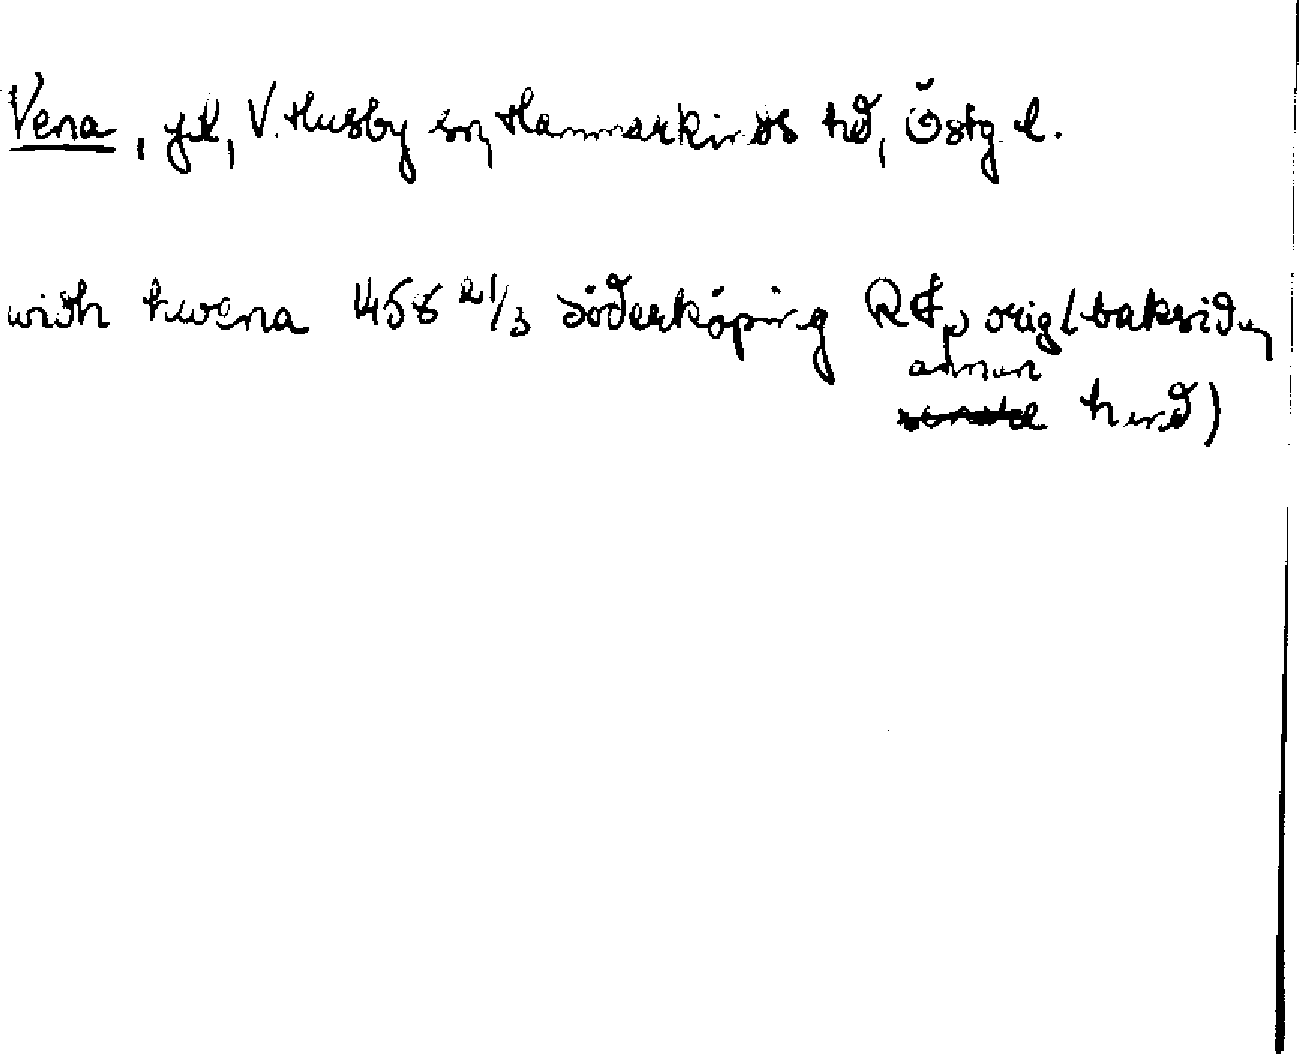 Vena, gd, V. Husby sn, Hammarkinds hd, Östg. l.
widh hwena 1458 21/3 Söderköping RAp orig (baksidan,
annan
hand)